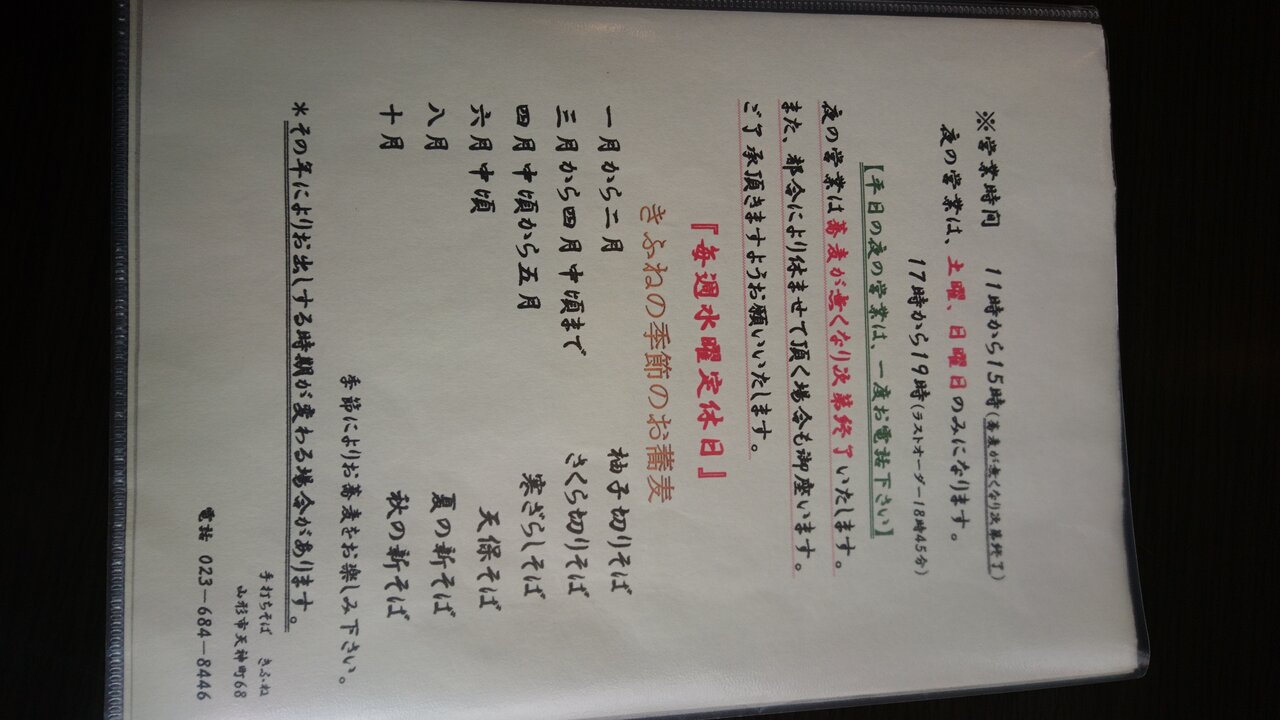 ※営業時間 11時から15時(蕎麦が無くなり次第終了)
夜の営業は、土曜、日曜日のみになります。
17時から19時(ラストオーダー18時45分)
【平日の夜の営業は、一度お電話下さい】
夜の営業は蕎麦が無くなり次第終了いたします。
また、都合により休ませて頂く場合も御座います。
ご了承頂きますようお願いいたします。
『毎週水曜定休日』
きふねの季節のお蕎麦
一月から二月 柚子切りそば
三月から四月中頃まで さくら切りそば
四月中頃から五月 寒ざらしそば
六月中頃 天保そば
八月 夏の新そば
十月 秋の新そば
季節によりお蕎麦をお楽しみ下さい。
*その年によりお出しする時期が変わる場合があります。
手打ちそば きふね
山形市天神町68
電話 023-684-8446